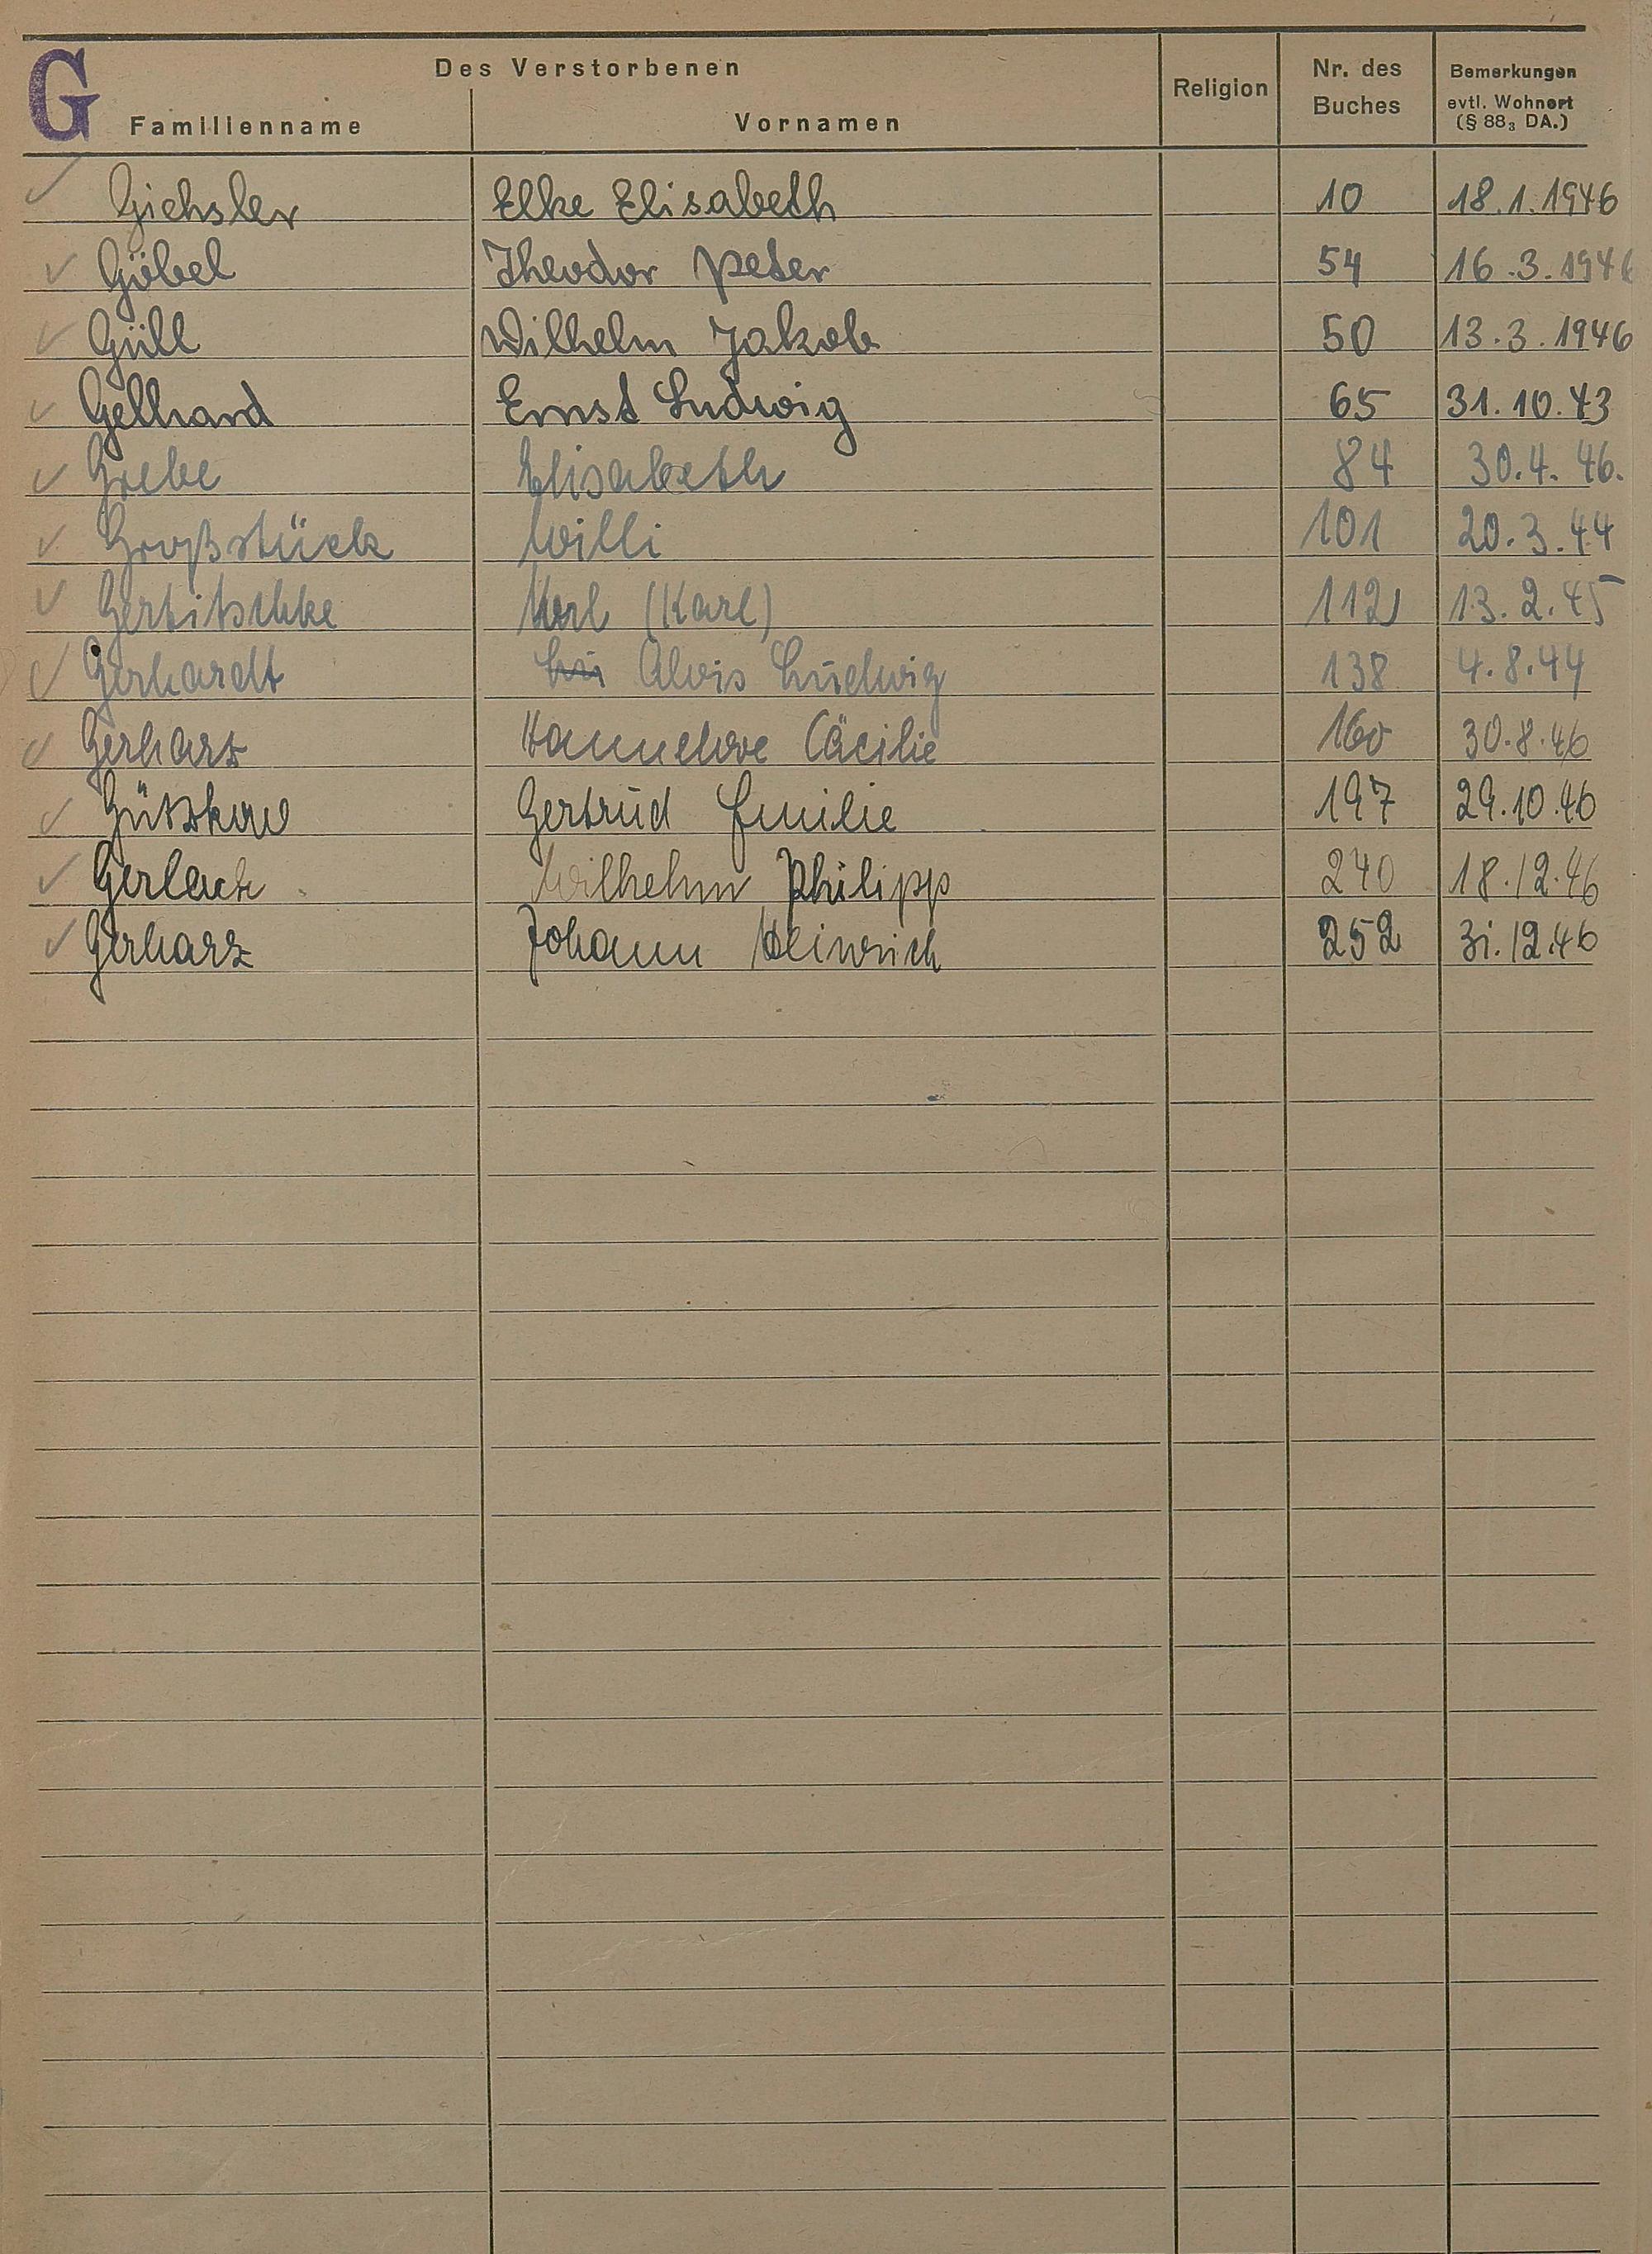 G
Des Verstorbenen
Familienname Vornamen Religion Nr. des Buches Bemerkungen evtl. Wohnort (§ 88₃ DA.)
Giehsler Elke Elisabeth 10 18.1.1946
Göbel Theodor Peter 54 16.3.1946
Güll Wilhelm Jakob 50 13.3.1946
Gelhard Ernst Ludwig 65 31.10.43
Grebe Elisabeth 84 30.4.46.
Großstück Willi 101 20.3.44
Gertitschke Karl (Karl) 112 13.2.45
Gerhardt Alois Ludwig 138 4.8.44
Gerharz Hannelore Cäcilie 160 30.8.46
Gützkow Gertrud Emilie 197 29.10.46
Gerlach Wilhelm Philipp 240 18.12.46
Gerharz Johann Heinrich 252 31.12.46